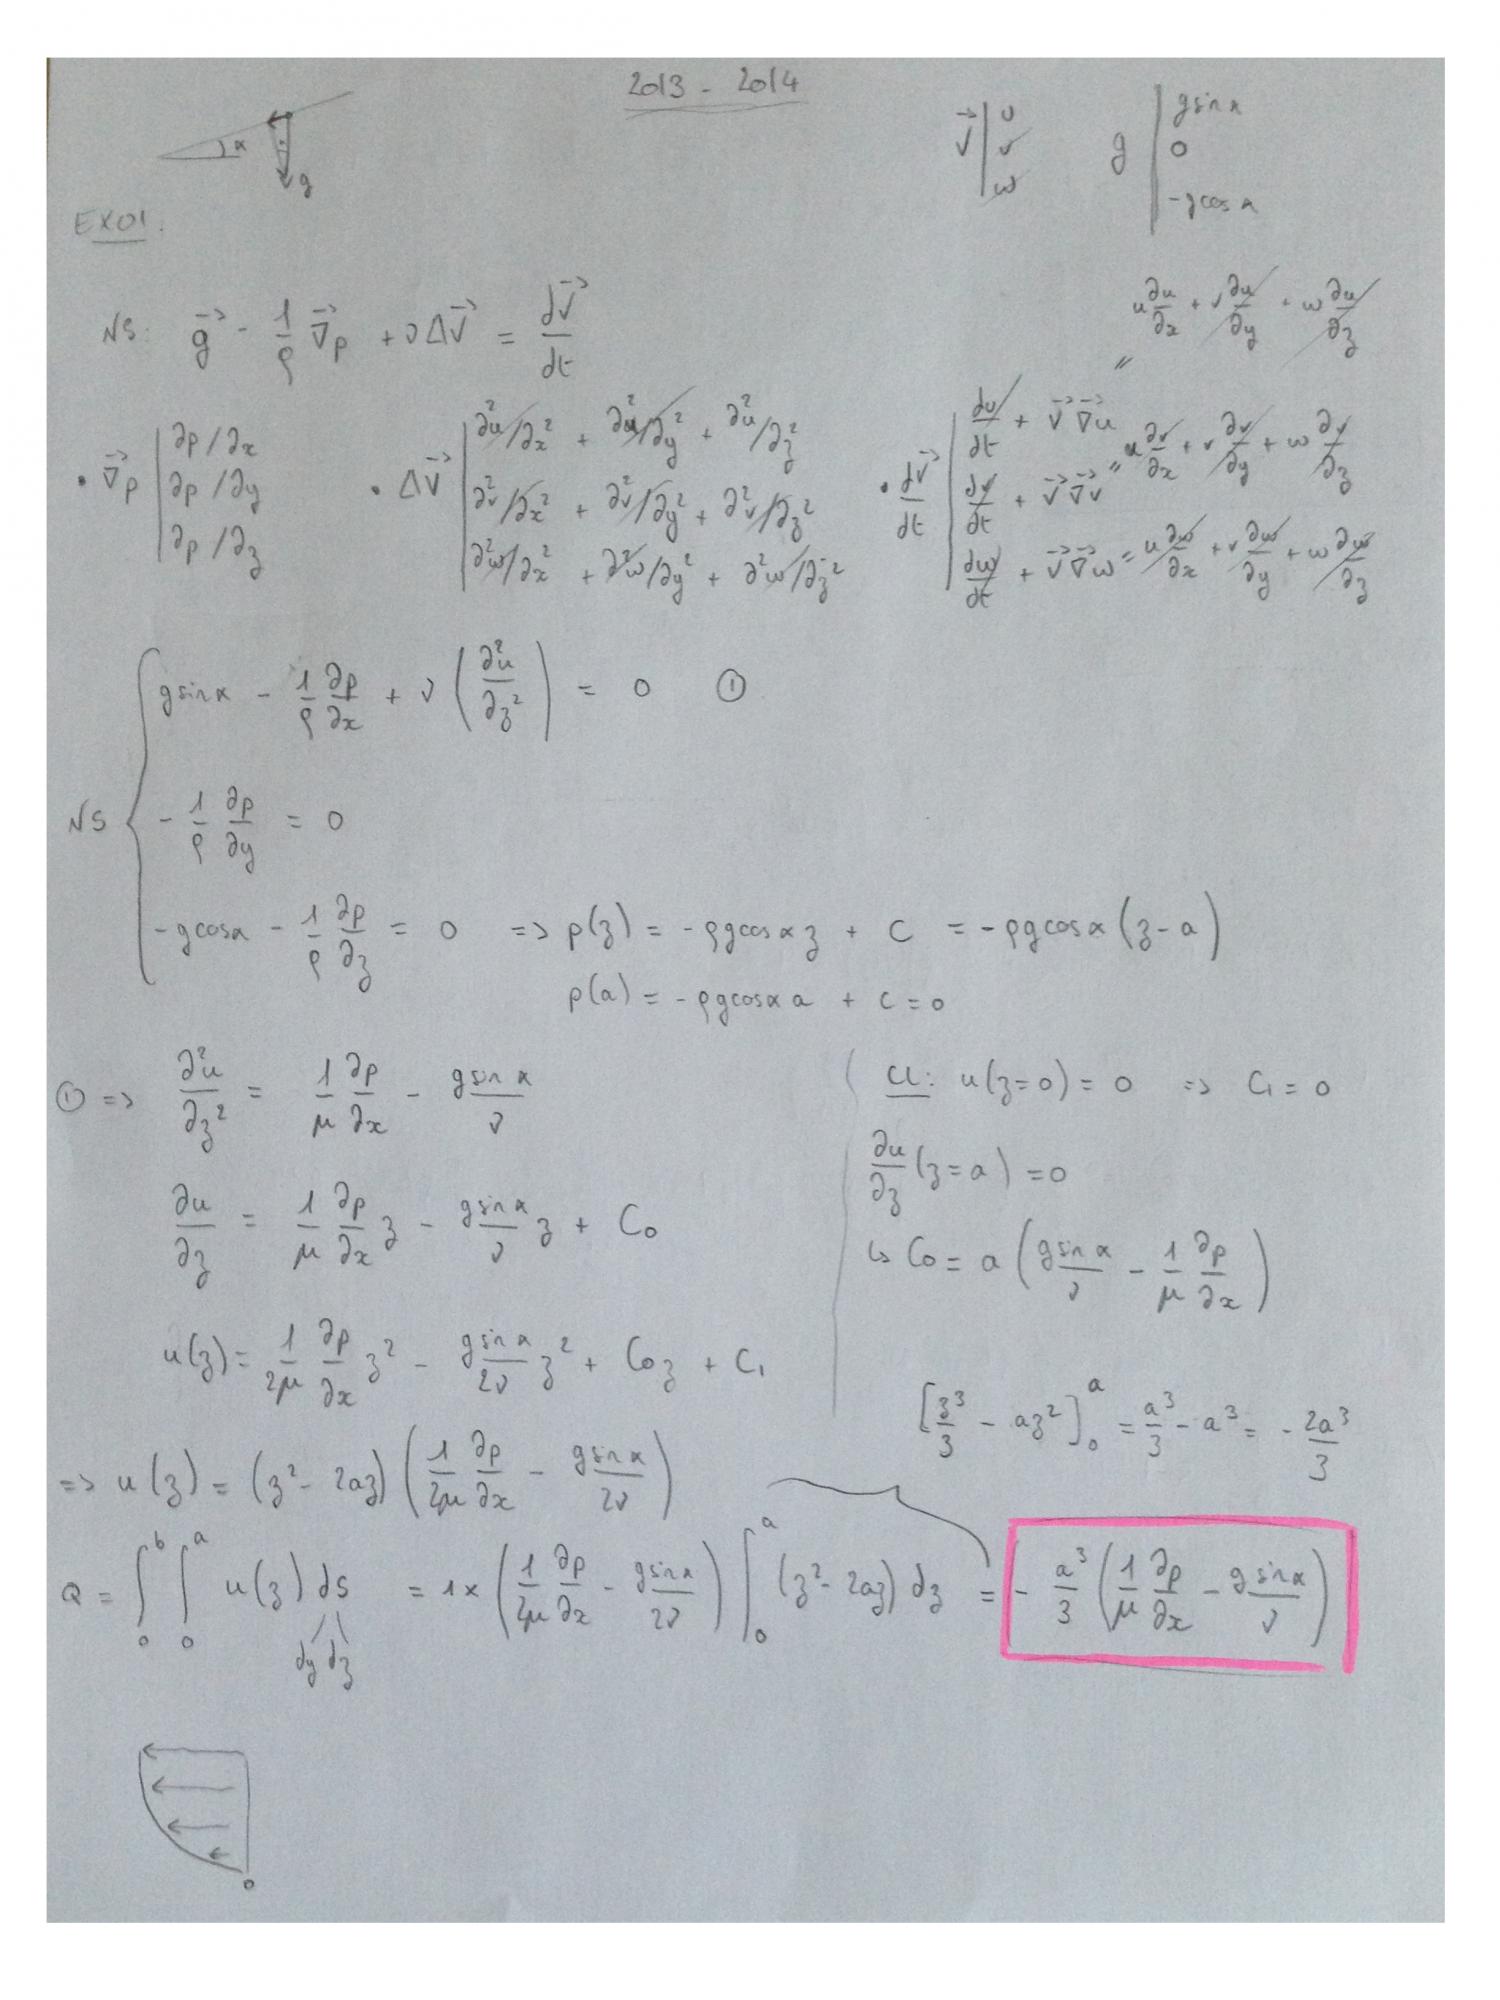 2013 - 2014
α
g
V⃗ | u
v
w
g | g sin α
0
- g cos α
EXO1:
NS: g⃗ - 1/ρ ∇⃗p + ν ΔV⃗ = dV⃗/dt
u ∂u/∂x + v ∂u/∂y + w ∂u/∂z
• ∇⃗p | ∂p/∂x
∂p/∂y
∂p/∂z
• ΔV⃗ | ∂²u/∂x² + ∂²u/∂y² + ∂²u/∂z²
∂²v/∂x² + ∂²v/∂y² + ∂²v/∂z²
∂²w/∂x² + ∂²w/∂y² + ∂²w/∂z²
• dV⃗/dt | du/dt + V⃗ ∇⃗u
dv/dt + V⃗ ∇⃗v = u ∂v/∂x + v ∂v/∂y + w ∂v/∂z
dw/dt + V⃗ ∇⃗w = u ∂w/∂x + v ∂w/∂y + w ∂w/∂z
NS { g sin α - 1/ρ ∂p/∂x + ν (∂²u/∂z²) = 0 ①
- 1/ρ ∂p/∂y = 0
- g cos α - 1/ρ ∂p/∂z = 0 => p(z) = - ρ g cos α z + C = - ρ g cos α (z - a)
p(a) = - ρ g cos α a + C = 0
① => ∂²u/∂z² = 1/μ ∂p/∂x - g sin α/ν
∂u/∂z = 1/μ ∂p/∂x z - g sin α/ν z + C₀
u(z) = 1/2μ ∂p/∂x z² - g sin α/2ν z² + C₀z + C₁
CL: u(z=0) = 0 => C₁ = 0
∂u/∂z (z=a) = 0
↳ C₀ = a (g sin α/ν - 1/μ ∂p/∂x)
[z³/3 - az²]₀ᵃ = a³/3 - a³ = - 2a³/3
=> u(z) = (z² - 2az) (1/2μ ∂p/∂x - g sin α/2ν)
Q = ∫₀ᵇ ∫₀ᵃ u(z) dS = 1 × (1/2μ ∂p/∂x - g sin α/2ν) ∫₀ᵃ (z² - 2az) dz = - a³/3 (1/μ ∂p/∂x - g sin α/ν)
dy dz
0